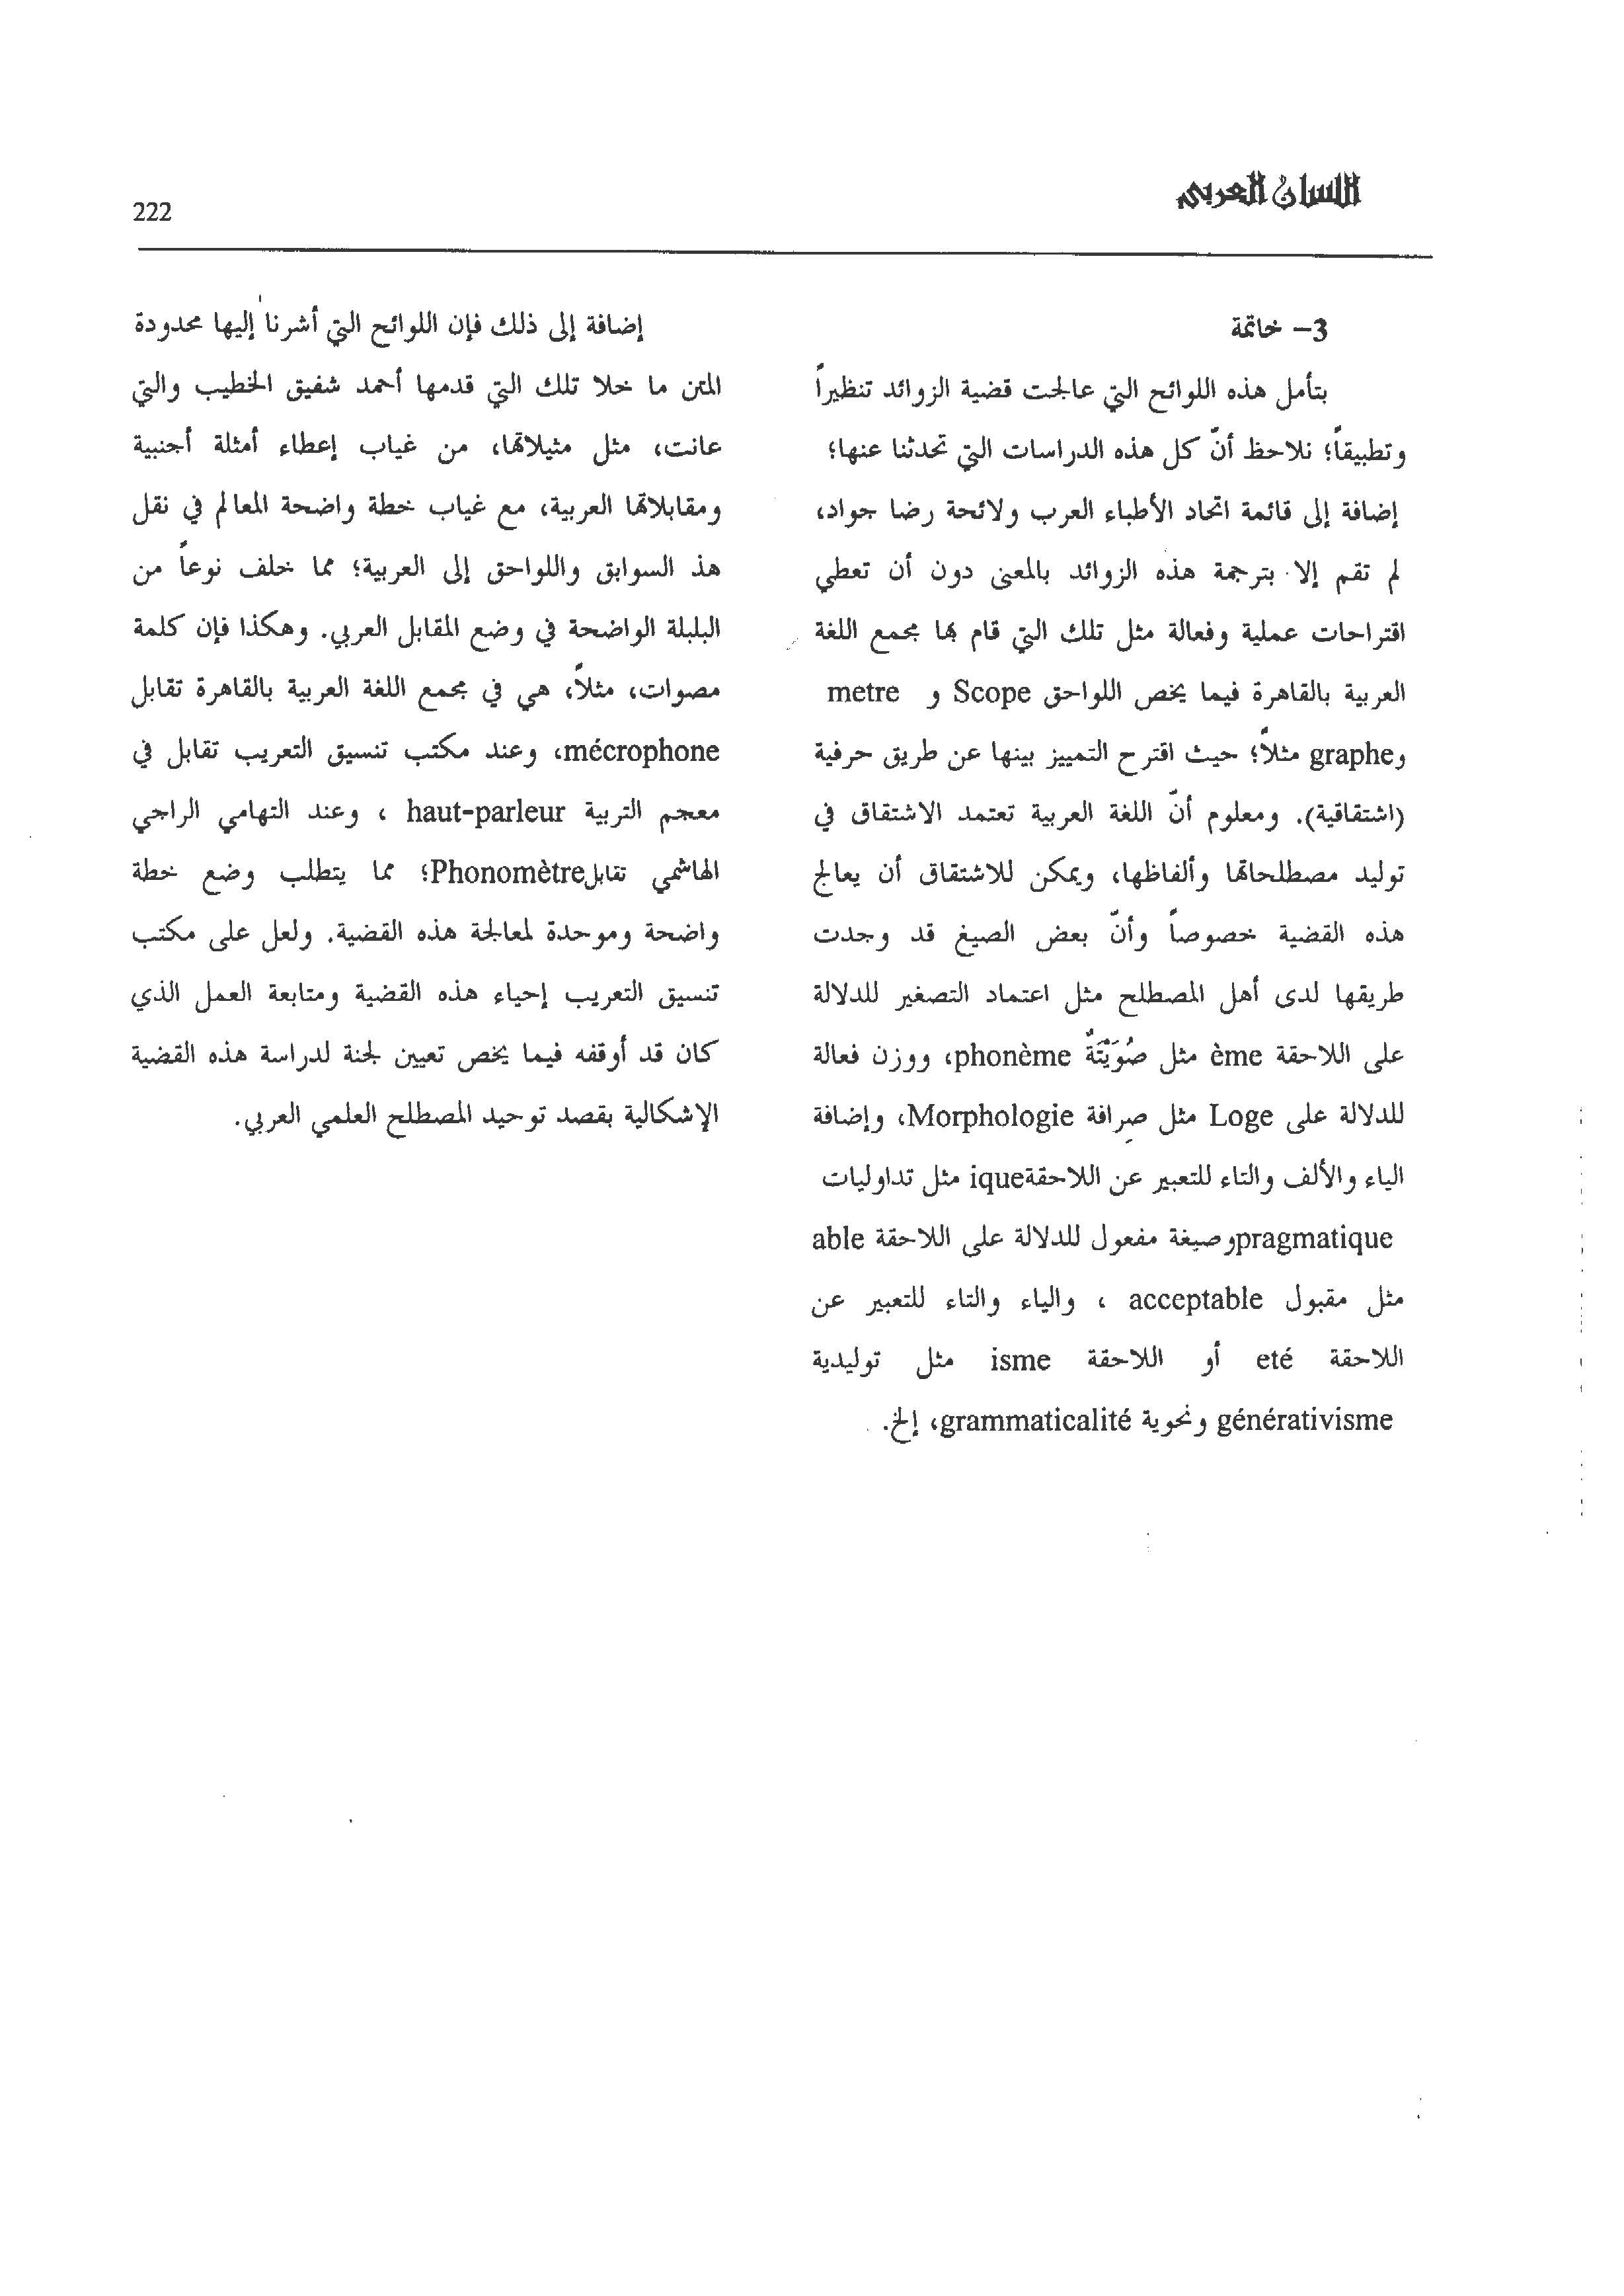 اللسان العربي
222
3- خاتمة
بتأمل هذه اللوائح التي عالجت قضية الزوائد تنظيراً
وتطبيقاً؛ نلاحظ أنّ كل هذه الدراسات التي تحدثنا عنها؛
إضافة إلى قائمة اتحاد الأطباء العرب ولائحة رضا جواد،
لم تقم إلا بترجمة هذه الزوائد بالمعنى دون أن تعطي
اقتراحات عملية وفعالة مثل تلك التي قام بها مجمع اللغة
العربية بالقاهرة فيما يخص اللواحق Scope و metre
وgraphe مثلاً؛ حيث اقترح التمييز بينها عن طريق حرفية
(اشتقاقية). ومعلوم أنّ اللغة العربية تعتمد الاشتقاق في
توليد مصطلحاتها وألفاظها، ويمكن للاشتقاق أن يعالج
هذه القضية خصوصاً وأنّ بعض الصيغ قد وجدت
طريقها لدى أهل المصطلح مثل اعتماد التصغير للدلالة
على اللاحقة ème مثل صُوَيْتَةٌ phonème، ووزن فعالة
للدلالة على Loge مثل صِرافة Morphologie، وإضافة
الياء والألف والتاء للتعبير عن اللاحقةique مثل تداوليات
pragmatiqueوصيغة مفعول للدلالة على اللاحقة able
مثل مقبول acceptable ، والياء والتاء للتعبير عن
اللاحقة eté أو اللاحقة isme مثل توليدية
générativisme ونحوية grammaticalité، إلخ.
إضافة إلى ذلك فإن اللوائح التي أشرنا إليها محدودة
المتن ما خلا تلك التي قدمها أحمد شفيق الخطيب والتي
عانت، مثل مثيلاتها، من غياب إعطاء أمثلة أجنبية
ومقابلاتها العربية، مع غياب خطة واضحة المعالم في نقل
هذ السوابق واللواحق إلى العربية؛ مما خلف نوعاً من
البلبلة الواضحة في وضع المقابل العربي. وهكذا فإن كلمة
مصوات، مثلاً، هي في مجمع اللغة العربية بالقاهرة تقابل
mécrophone، وعند مكتب تنسيق التعريب تقابل في
معجم التربية haut-parleur ، وعند التهامي الراجي
الهاشمي تقابلPhonomètre؛ مما يتطلب وضع خطة
واضحة وموحدة لمعالجة هذه القضية. ولعل على مكتب
تنسيق التعريب إحياء هذه القضية ومتابعة العمل الذي
كان قد أوقفه فيما يخص تعيين لجنة لدراسة هذه القضية
الإشكالية بقصد توحيد المصطلح العلمي العربي.